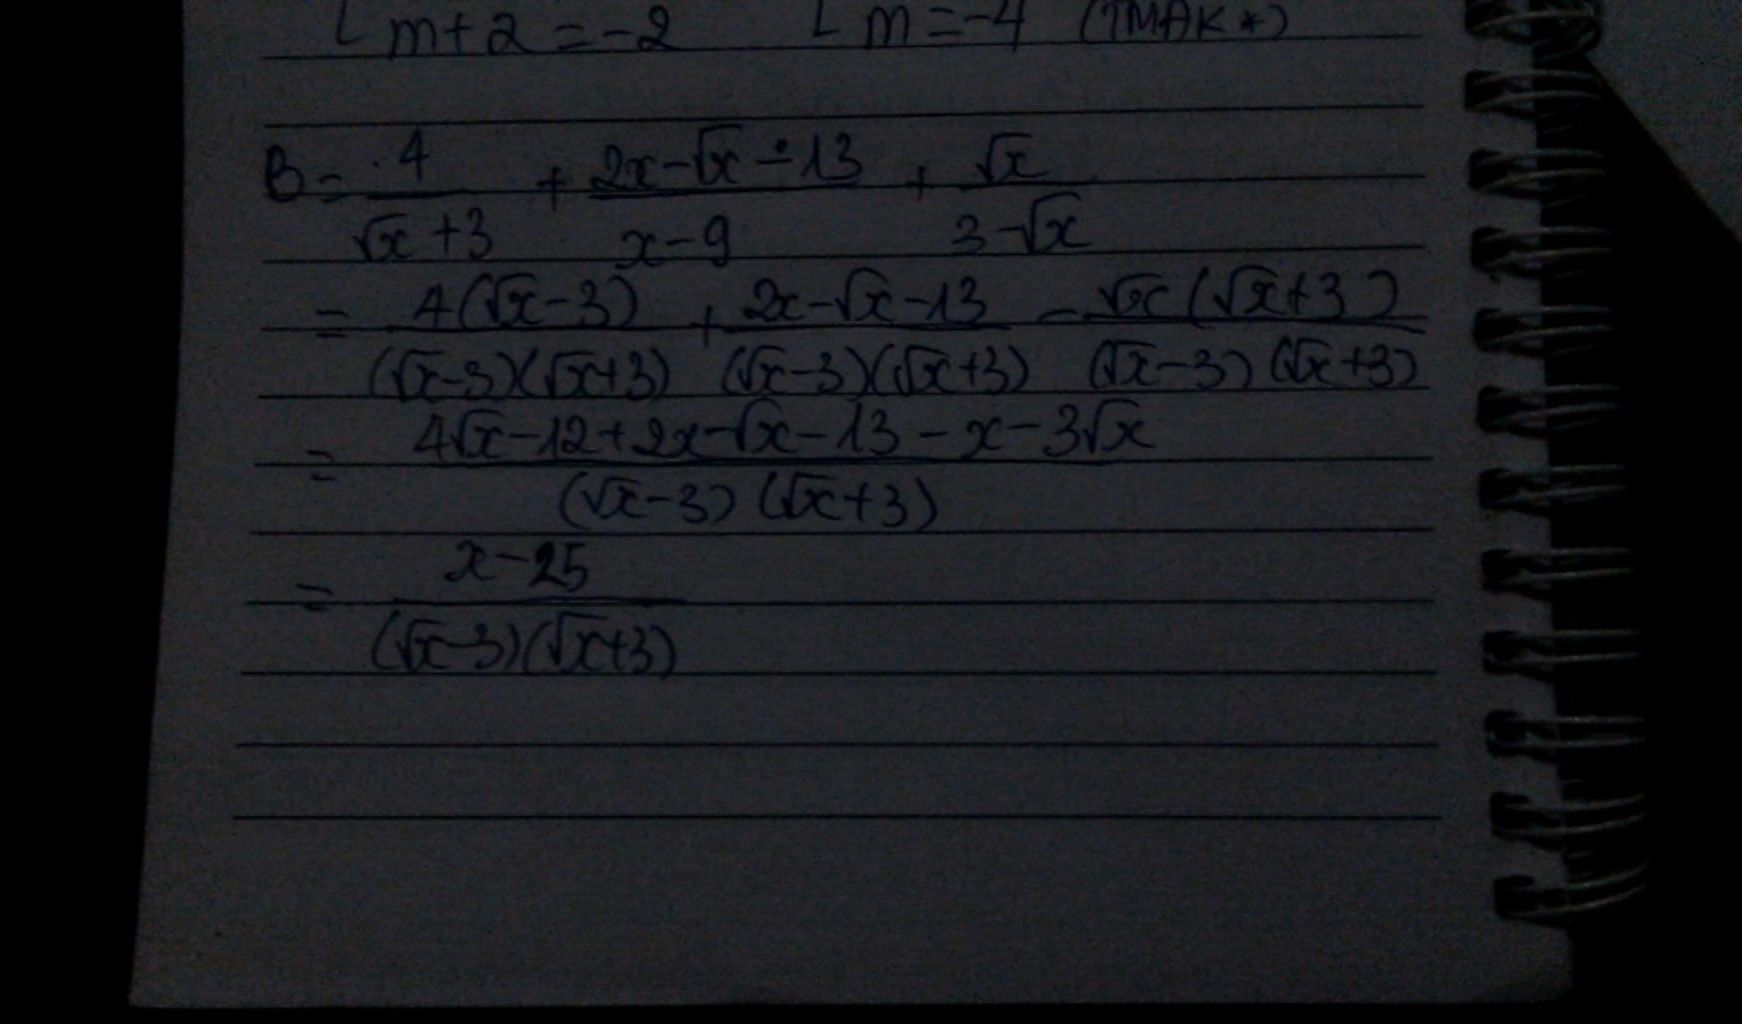 [ m+2=-2 [ m=-4 (TMĐK*)
B = 4/(√x+3) + (2x-√x-13)/(x-9) + √x/(3-√x)
= 4(√x-3)/((√x-3)(√x+3)) + (2x-√x-13)/((√x-3)(√x+3)) - √x(√x+3)/((√x-3)(√x+3))
= (4√x-12+2x-√x-13-x-3√x)/((√x-3)(√x+3))
= (x-25)/((√x-3)(√x+3))